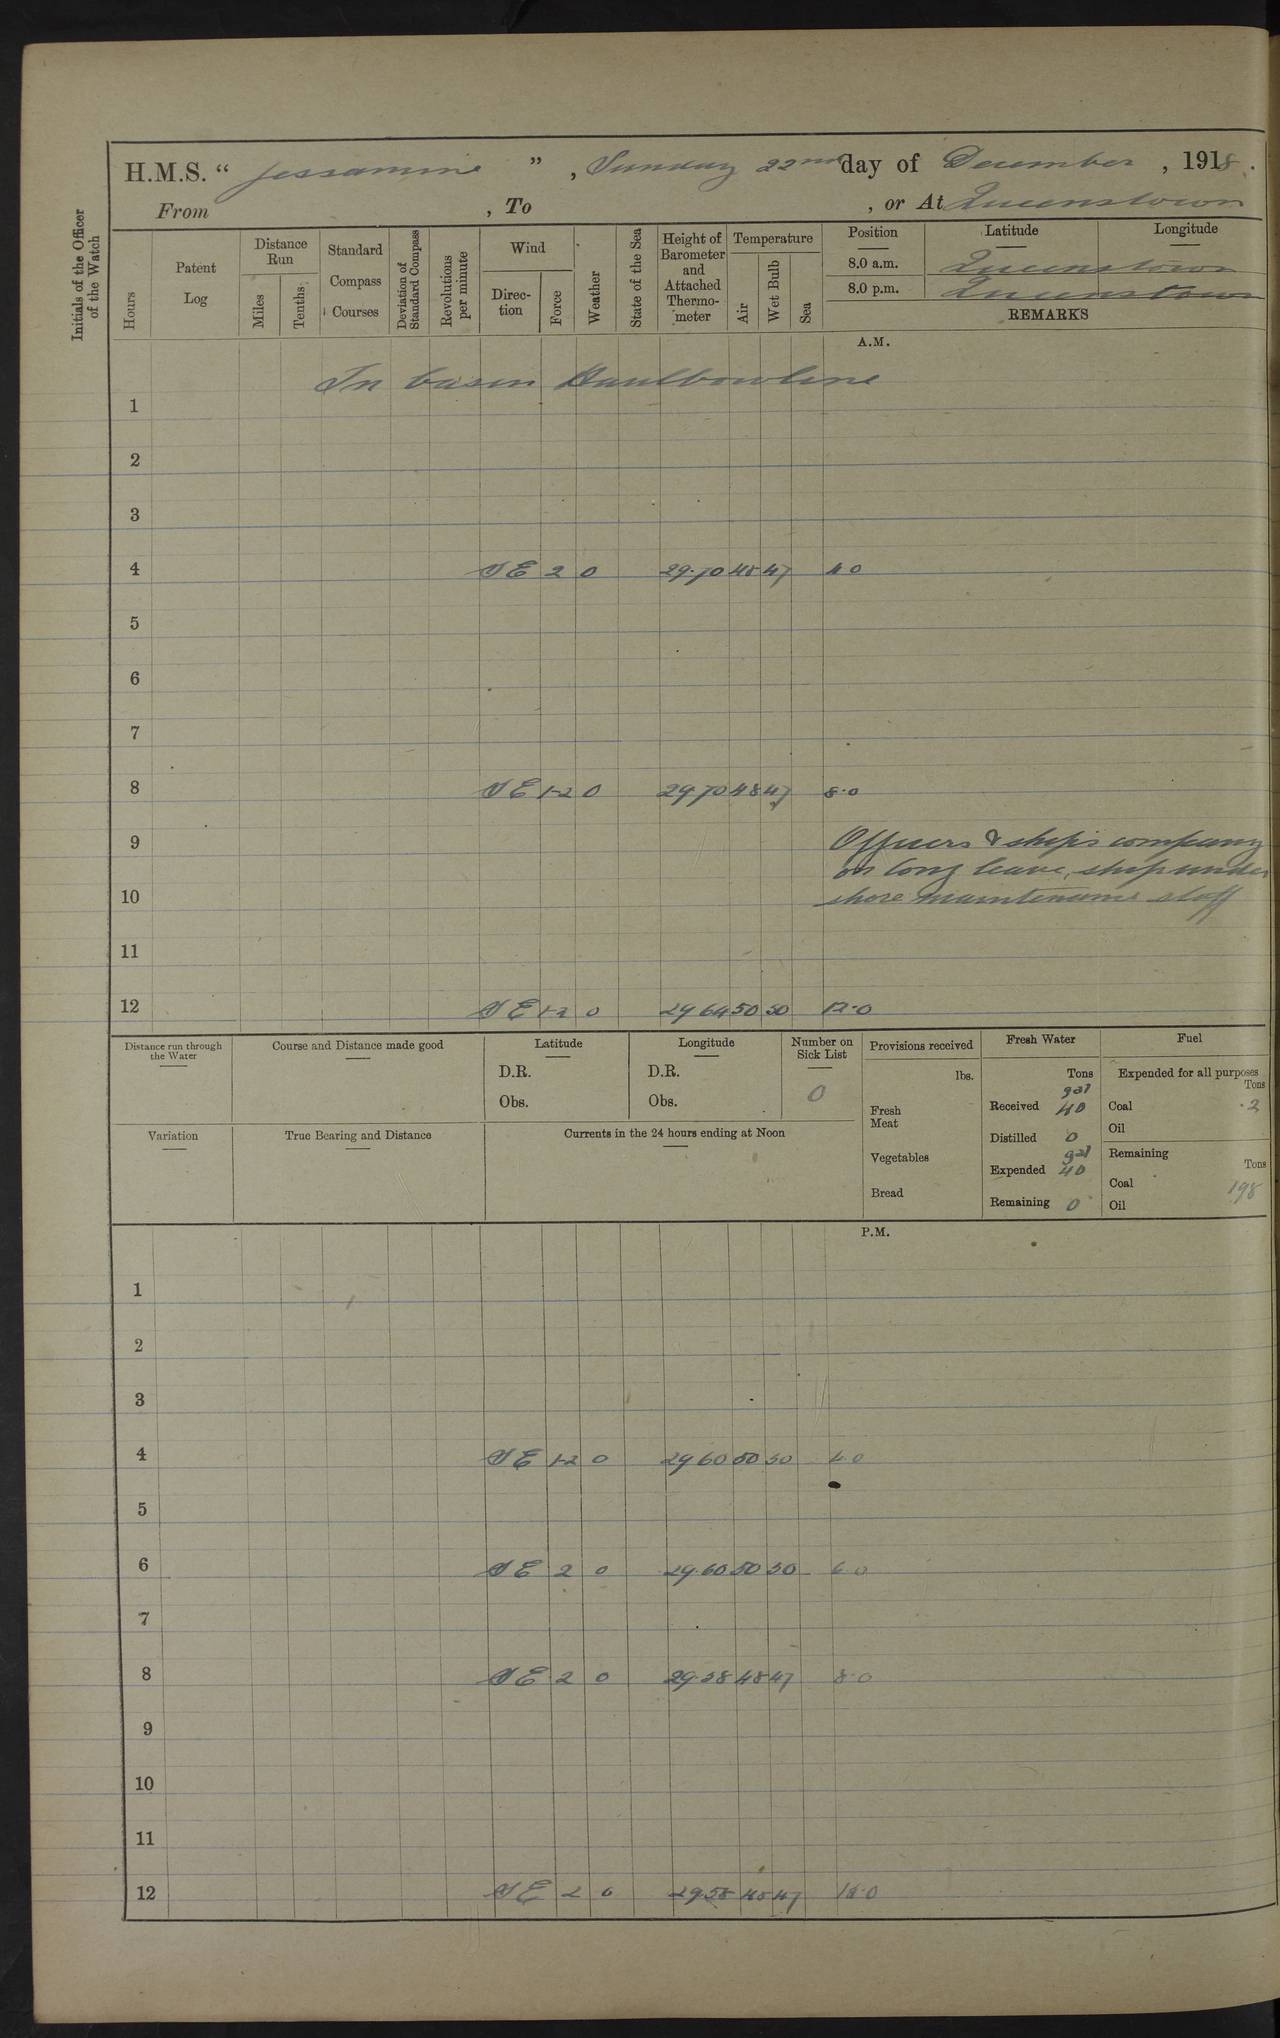 H.M.S. “ Jessamine ” , Sunday 22nd day of December , 1918.
From , To , or At Queenstown
Initials of the Officer of the Watch
Hours
Patent Log
Distance Run
Miles
Tenths
Standard Compass Courses
Deviation of Standard Compass
Revolutions per minute
Wind
Direc-tion
Force
Weather
State of the Sea
Height of Barometer and Attached Thermo-meter
Temperature
Air
Wet Bulb
Sea
Position Latitude Longitude
8.0 a.m. Queenstown
8.0 p.m. Queenstown
REMARKS
A.M.
In basin Haulbowline
1
2
3
4 SE 2 0 29.70 48 47 4.0
5
6
7
8 SE 1-2 0 29 70 48 47 8.0
9 Officers & ship's company
on long leave, ship under
10 shore maintenance staff
11
12 SE 1-2 0 29 64 50 50 12.0
Distance run through the Water
Course and Distance made good
Latitude
D.R.
Obs.
Longitude
D.R.
Obs.
Number on Sick List
0
Provisions received
lbs.
Fresh Meat
Vegetables
Bread
Fresh Water
Tons
gal
Received 40
Distilled 0
gal
Expended 40
Remaining 0
Fuel
Expended for all purposes
Tons
Coal .2
Oil
Remaining
Tons
Coal 198
Oil
Variation
True Bearing and Distance
Currents in the 24 hours ending at Noon
P.M.
1
2
3
4 SE 1-2 0 29 60 50 50 4.0
5
6 SE 2 0 29.60 50 50 6.0
7
8 SE 2 0 29.58 48 47 8.0
9
10
11
12 SE 2 0 29.58 48 47